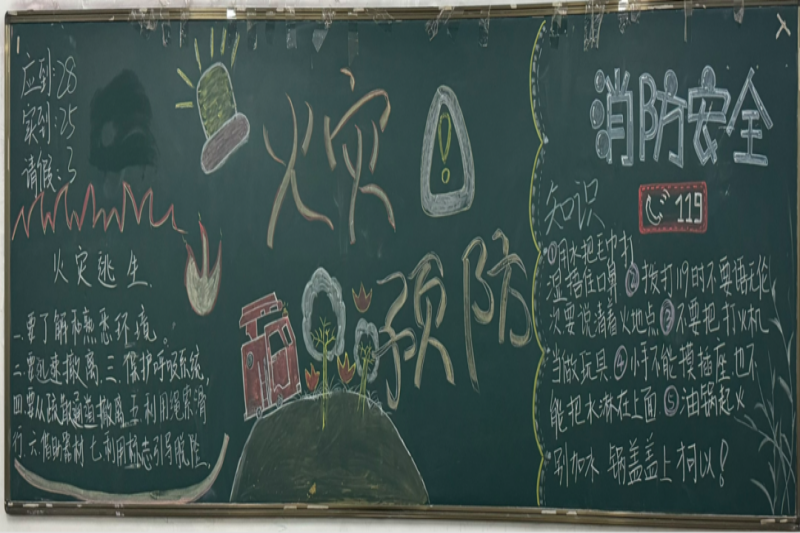 应到:28
实到:25
请假:3
火灾逃生
一.要了解和熟悉环境。
二.要迅速撤离.三.保护呼吸系统,
四.要从疏散通道撤离.五.利用绳索滑
行.六.借助器材.七.利用标志引导脱险.
火灾
预防
!
消防安全
知识
119
①用水把毛巾打
湿捂住口鼻②拨打119时不要语无伦
次要说清着火地点③不要把打火机
当做玩具④小手不能摸插座也不
能把水淋在上面⑤油锅起火
别加水 锅盖盖上可以!